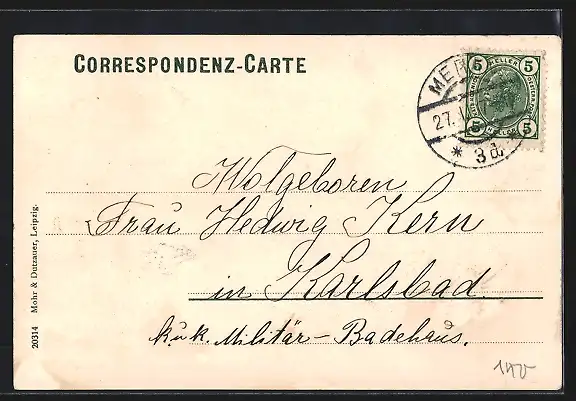 CORRESPONDENZ-CARTE
5 HELLER 5
5 HELLER 5
27.
* 3d *
Wolgeboren
Frau Hedwig Kern
in Karlsbad.
k.u.k. Militär-Badehaus.
20314 Mohr & Dutzauer, Leipzig.
140